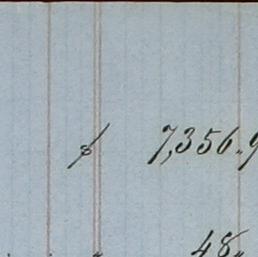 $ 7,356.9
" 48"